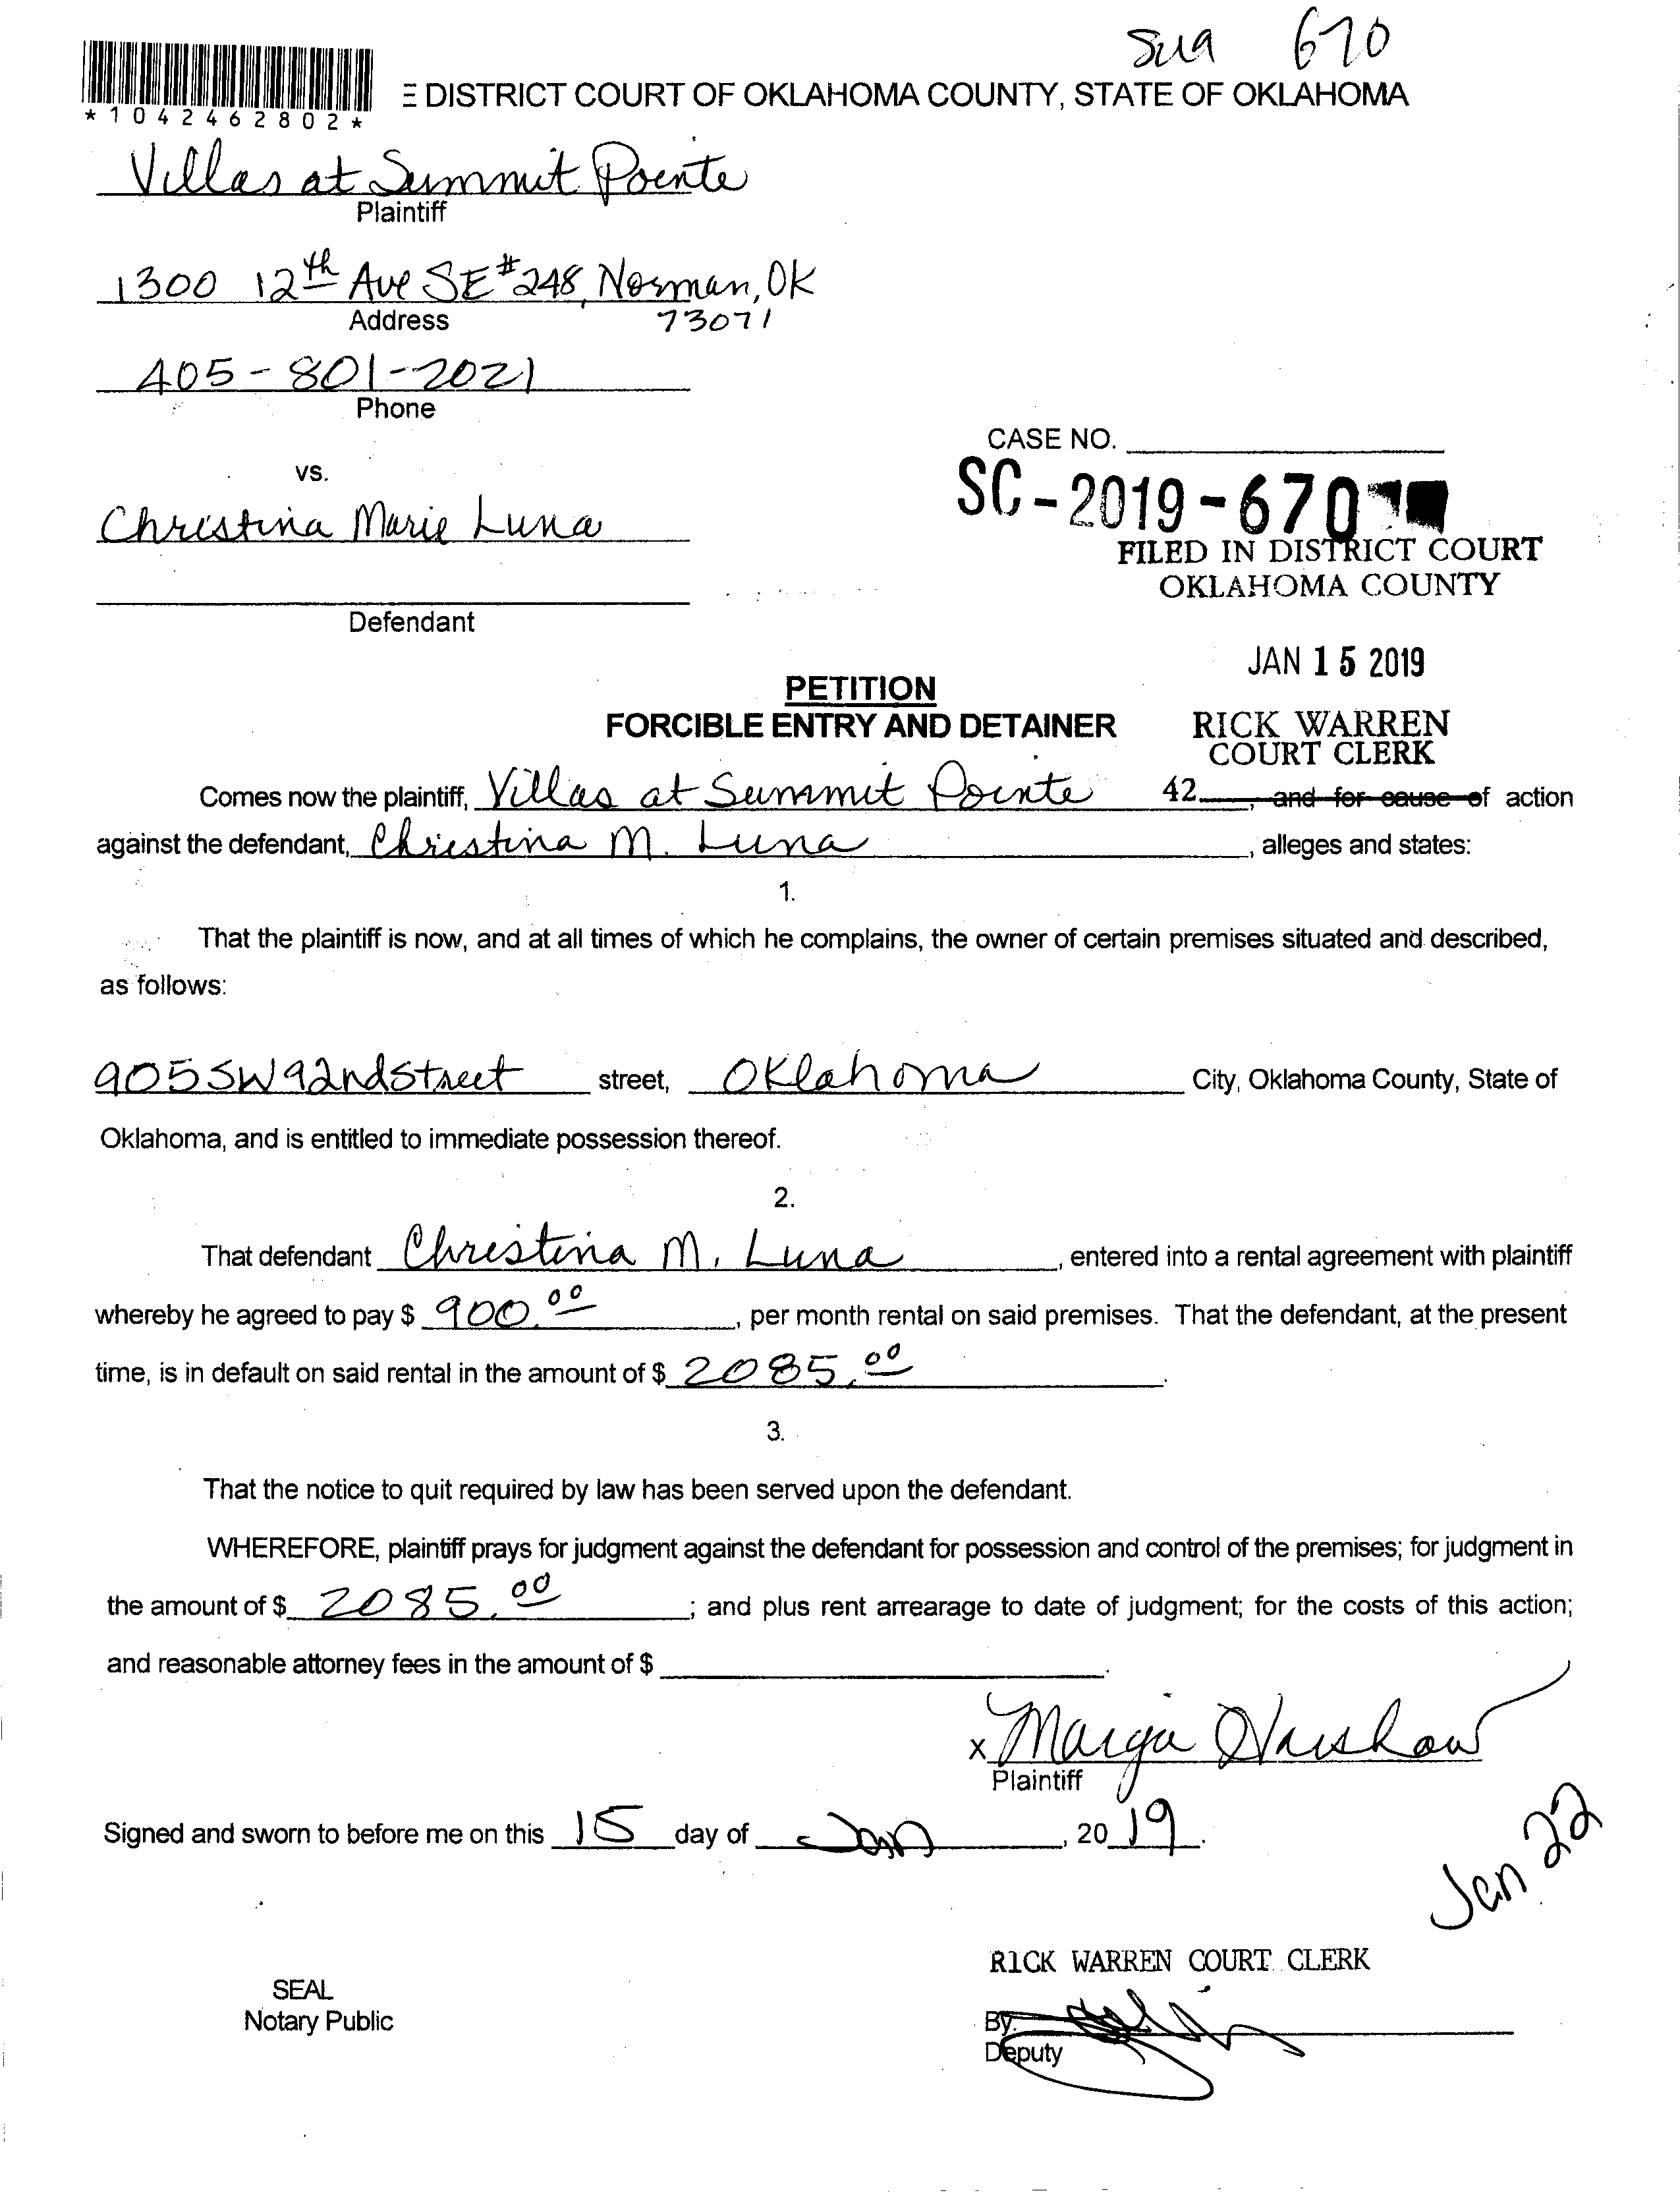 Sua 670
*1042462802*
E DISTRICT COURT OF OKLAHOMA COUNTY, STATE OF OKLAHOMA
Villas at Summit Pointe
Plaintiff
1300 12th Ave SE #248, Norman, OK
Address 73071
405-801-2021
Phone
CASE NO.
vs.
SC-2019-670
Christina Marie Luna
FILED IN DISTRICT COURT
OKLAHOMA COUNTY
Defendant
JAN 15 2019
PETITION
FORCIBLE ENTRY AND DETAINER
RICK WARREN
COURT CLERK
Comes now the plaintiff, Villas at Summit Pointe 42, and for cause of action
against the defendant, Christina M. Luna, alleges and states:
1.
That the plaintiff is now, and at all times of which he complains, the owner of certain premises situated and described,
as follows:
905 SW 92nd Street street, Oklahoma City, Oklahoma County, State of
Oklahoma, and is entitled to immediate possession thereof.
2.
That defendant Christina M. Luna, entered into a rental agreement with plaintiff
whereby he agreed to pay $ 900.00, per month rental on said premises. That the defendant, at the present
time, is in default on said rental in the amount of $ 2085.00.
3.
That the notice to quit required by law has been served upon the defendant.
WHEREFORE, plaintiff prays for judgment against the defendant for possession and control of the premises; for judgment in
the amount of $ 2085.00; and plus rent arrearage to date of judgment; for the costs of this action;
and reasonable attorney fees in the amount of $ .
x Margie Harshaw
Plaintiff
Signed and sworn to before me on this 15 day of Jan, 2019.
Jan 22
RICK WARREN COURT CLERK
SEAL
Notary Public
By:
Deputy